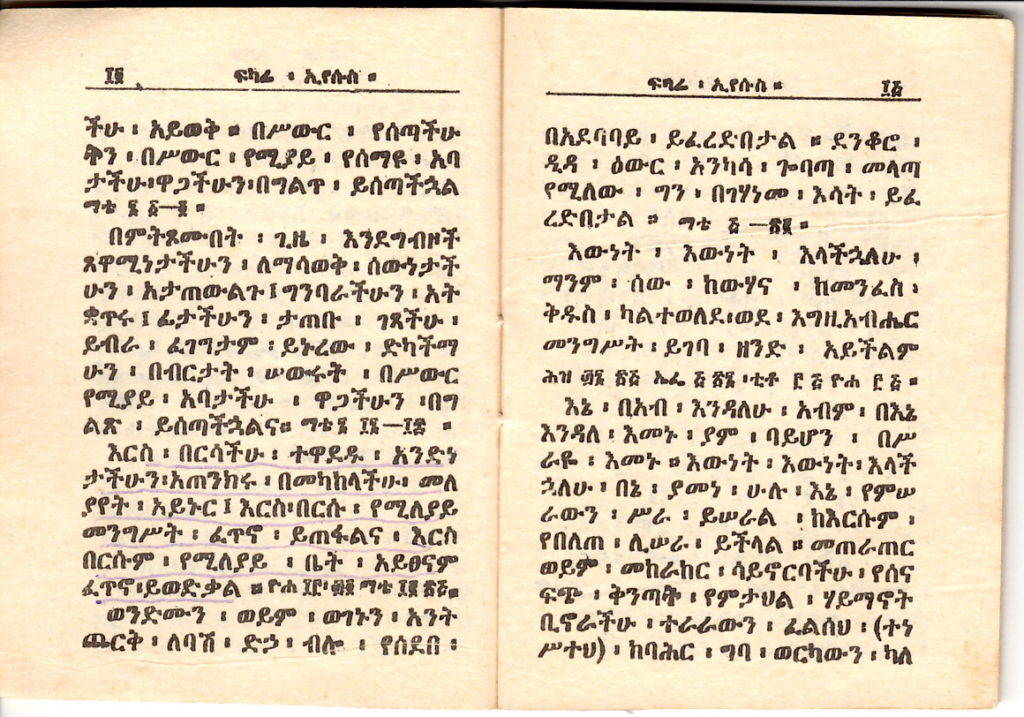 ፲፬ ፍካሬ ፡ ኢየሱስ ።
ችሁ ፡ አይወቅ ። በሥውር ፡ የሰጣችሁ
ቅን ፡ በሥውር ፡ የሚያይ ፡ የሰማዩ ፡ አባ
ታችሁ፡ዋጋችሁን፡በግልጥ ፡ ይሰጣችኋል
ማቴ ፮ ፩—፬ ።
በምትጾሙበት ፡ ጊዜ ፡ እንደግብዞች
ጸዋሚነታችሁን ፡ ለማሳወቅ ፡ ሰውነታች
ሁን ፡ አታጠውልጉ ፤ ግንባራችሁን ፡ አት
ቋጥሩ ፤ ፊታችሁን ፡ ታጠቡ ፡ ገጻችሁ ፡
ይብራ ፡ ፈገግታም ፡ ይኑረው ፡ ድካችማ
ሁን ፡ በብርታት ፡ ሠውሩት ፡ በሥውር
የሚያይ ፡ አባታችሁ ፡ ዋጋችሁን ፡በግ
ልጽ ፡ ይሰጣችኋልና። ማቴ ፮ ፲፮—፲፰ ።
እርስ ፡ በርሳችሁ ፡ ተዋደዱ ፡ አንድነ
ታችሁን፡አጠንክሩ ፡ በመካከላችሁ፡ መለ
ያየት ፡ አይኑር ፤ እርስ፡በርሱ ፡ የሚለያይ
መንግሥት ፡ ፈጥኖ ፡ ይጠፋልና ፡ እርስ
በርሱም ፡ የሚለያይ ፡ ቤት ፡ አይፀናም
ፈጥኖ፡ይወድቃል ። ዮሐ ፲፫፡፴፬ ማቴ ፲፪ ፳፭።
ወንድሙን ፡ ወይም ፡ ወገኑን ፡ አንት
ጨርቅ ፡ ለባሽ ፡ ድኃ ፡ ብሎ ፡ የሰደበ ፡
ፍካሬ ፡ ኢየሱስ ። ፲፭
በአደባባይ ፡ ይፈረድበታል ። ደንቆሮ ፡
ዲዳ ፡ ዕውር ፡ አንካሳ ፡ ጐባጣ ፡ መላጣ
የሚለው ፡ ግን ፡ በገሃነመ ፡ እሳት ፡ ይፈ
ረድበታል ። ማቴ ፭ —፳፪ ።
እውነት ፡ እውነት ፡ እላችኋለሁ ፡
ማንም ፡ ሰው ፡ ከውሃና ፡ ከመንፈስ፡
ቅዱስ ፡ ካልተወለደ፡ወደ ፡ እግዚአብሔር
መንግሥት ፡ ይገባ ፡ ዘንድ ፡ አይችልም
ሕዝ ፴፮ ፳፭ ኤፌ ፭ ፳፮ ፡ቲቶ ፫ ፭ ዮሐ ፫ ፭ ።
እኔ ፡ በአብ ፡ እንዳለሁ ፡ አብም ፡ በእኔ
እንዳለ ፡ እመኑ ፡ ያም ፡ ባይሆን ፡ በሥ
ራዬ ፡ እመኑ ። እውነት ፡ እውነት፡ እላች
ኋለሁ ፡ በኔ ፡ ያመነ ፡ ሁሉ ፡ እኔ ፡ የምሠ
ራውን ፡ ሥራ ፡ ይሠራል ፡ ከእርሱም ፡
የበለጠ ፡ ሊሠራ ፡ ይችላል ። መጠራጠር
ወይም ፡ መከራከር ፡ ሳይኖርባችሁ ፡ የሰና
ፍጭ ፡ ቅንጣት ፡ የምታህል ፡ ሃይማኖት
ቢኖራችሁ ፡ ተራራውን ፡ ፈልሰህ ፡ (ተነ
ሥተህ) ፡ ከባሕር ፡ ግባ ፡ ወርካውን ፡ ካለ